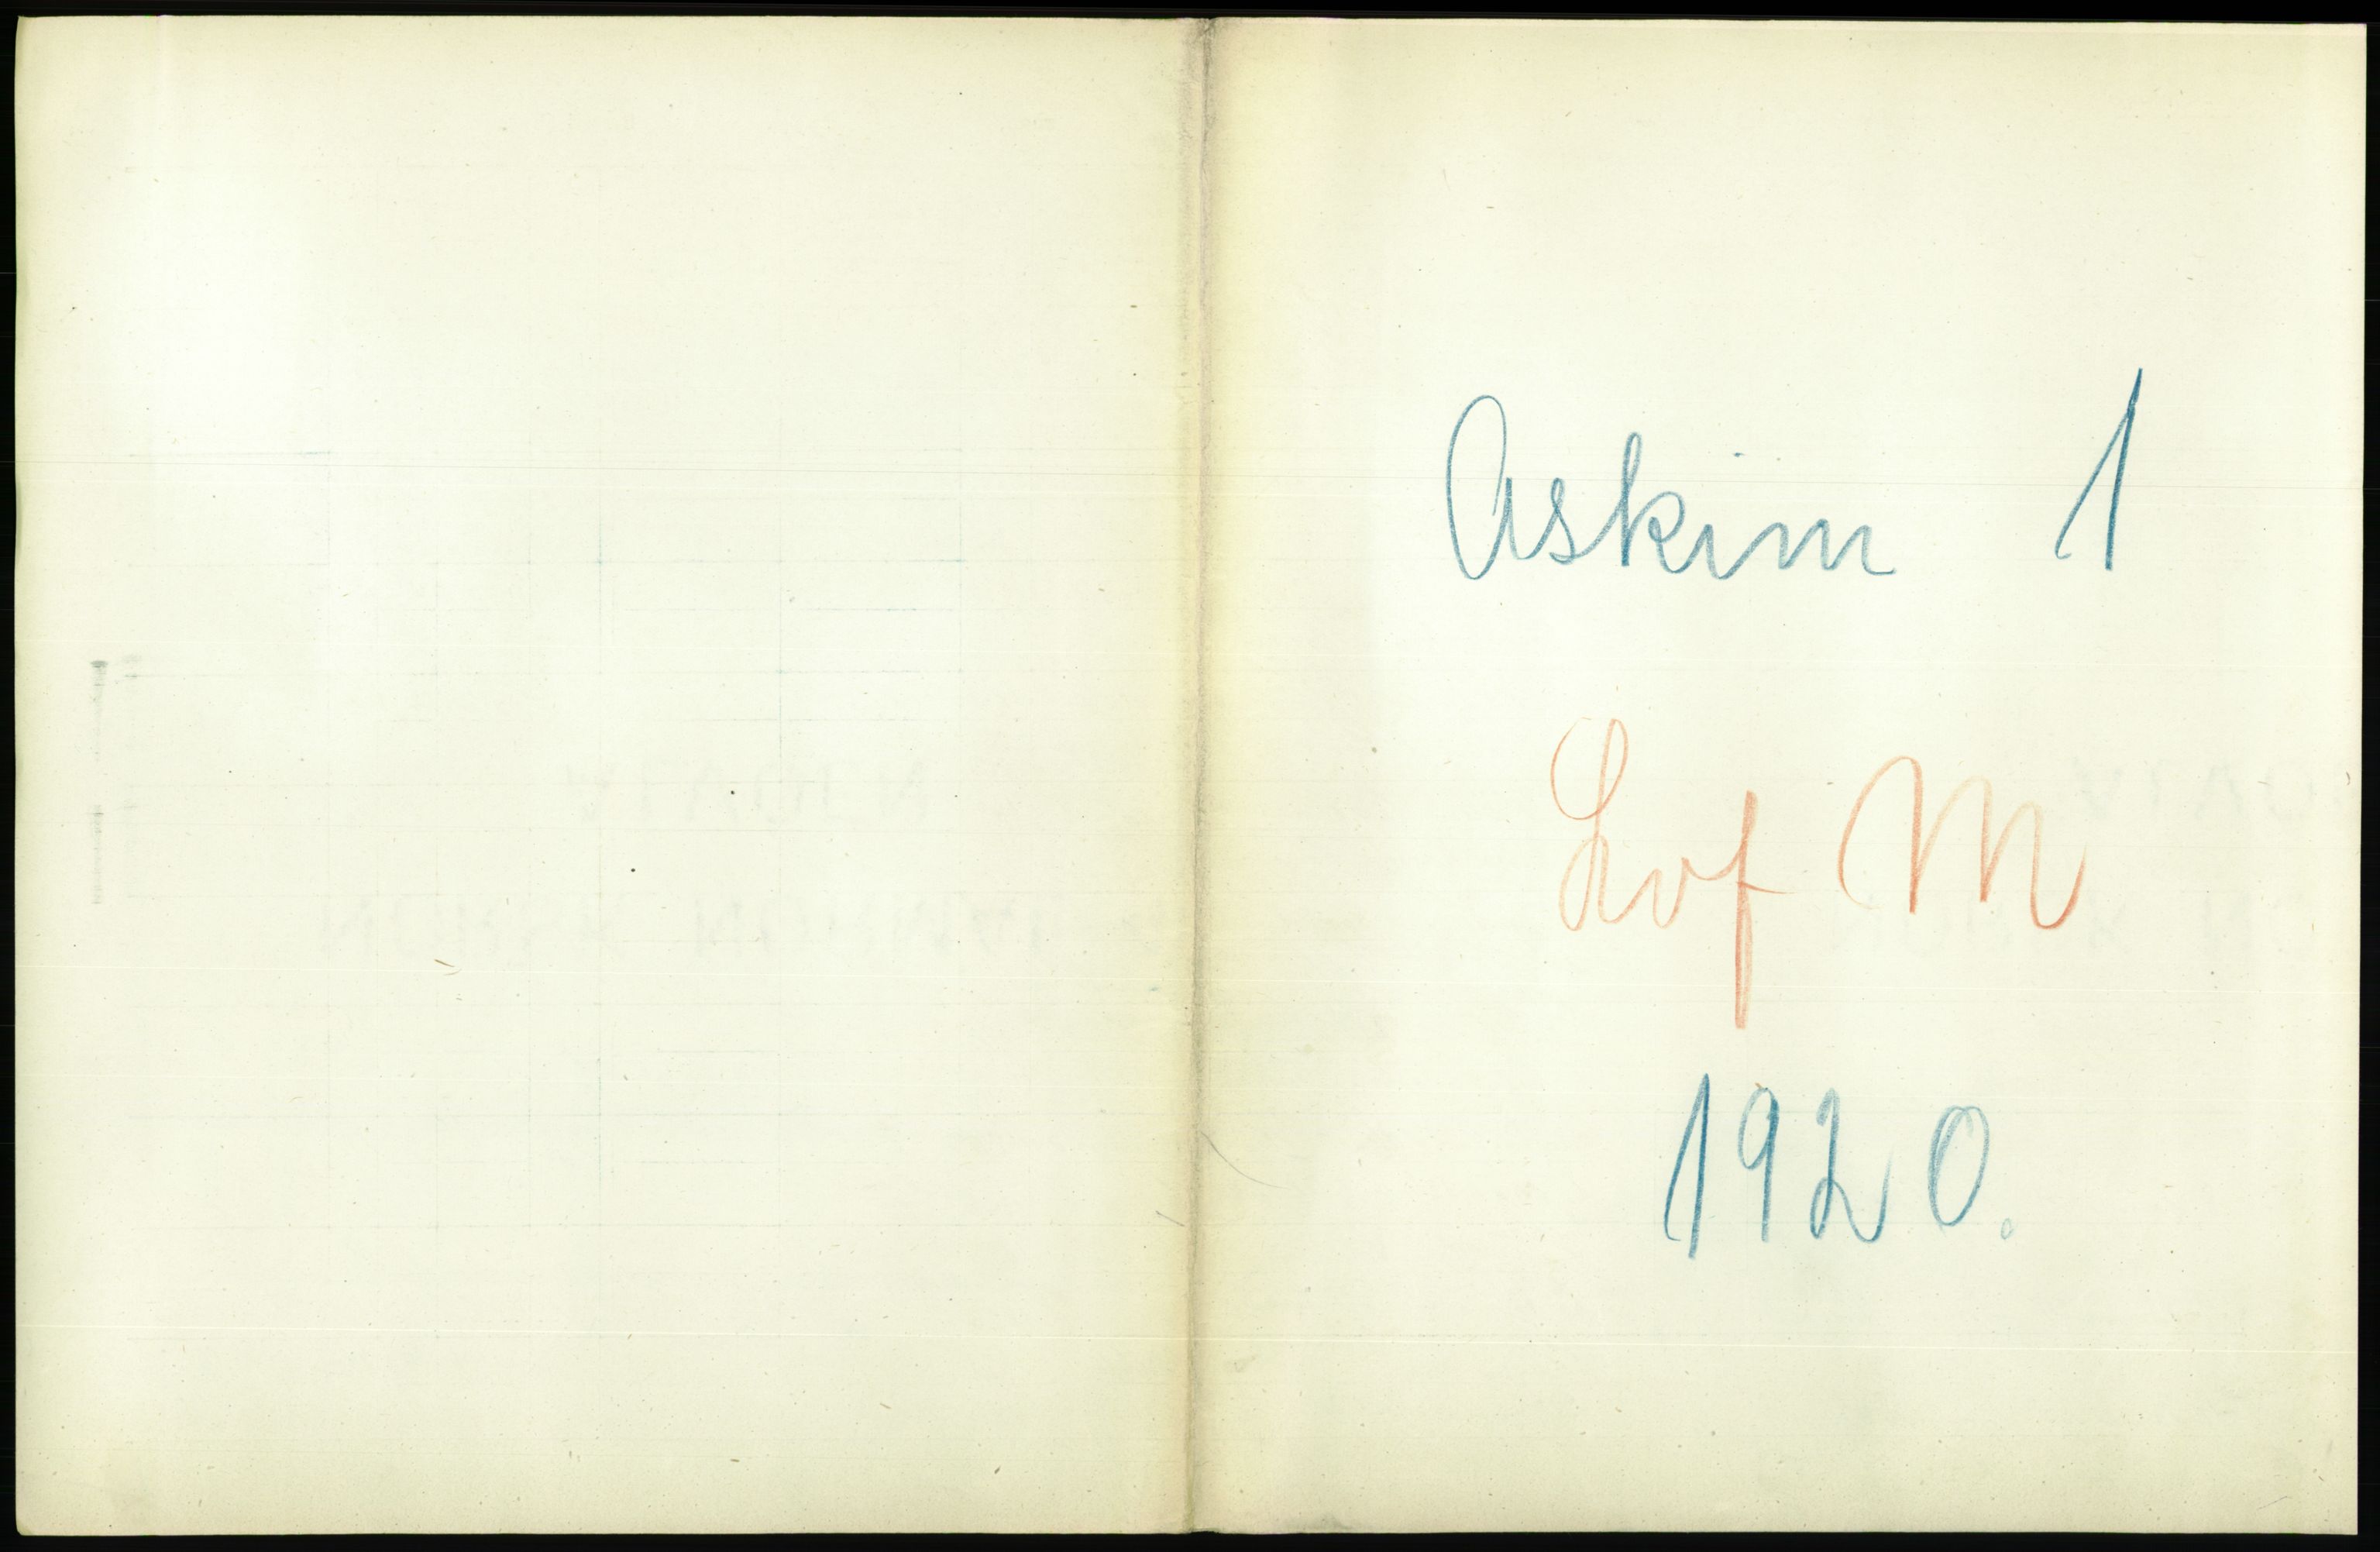 Askim 1
Lvf M
1920.